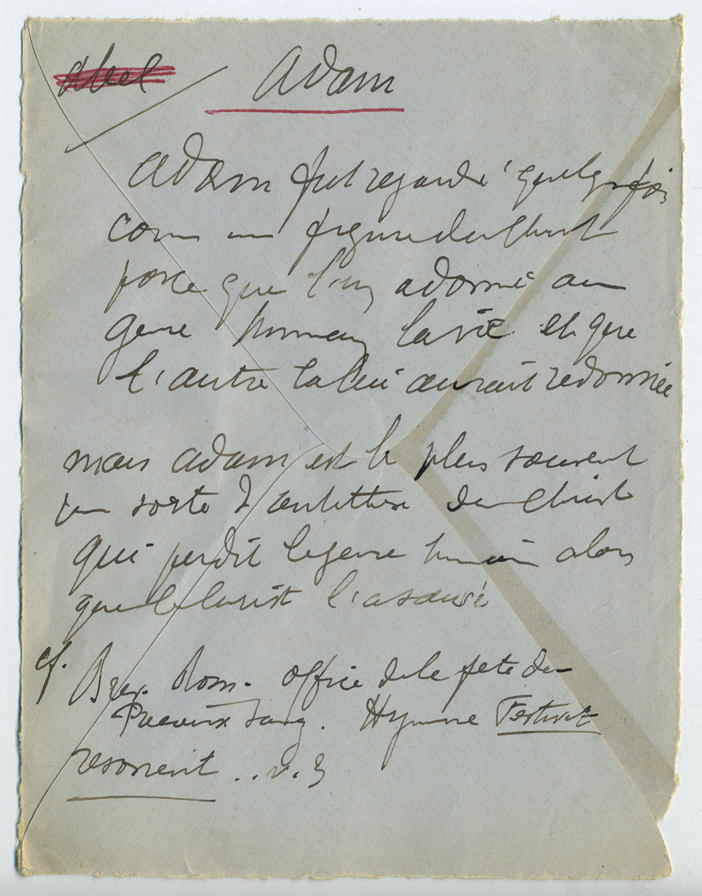 Abel Adam
Adam fut regardé quelquefois
com un figure du Christ
parce que l'un a donné au
genre humain la vie et que
l'autre la lui aurait redonnée
mais Adam est le plus souvent
un sorte d'antithèse du Christ
qui perdit le genre humain alors
que le Christ l'a sauvé
cf. Brev. Rom. Office de la fete du
Precieux Sang. Hymne Festivis
resonent .. v. 3